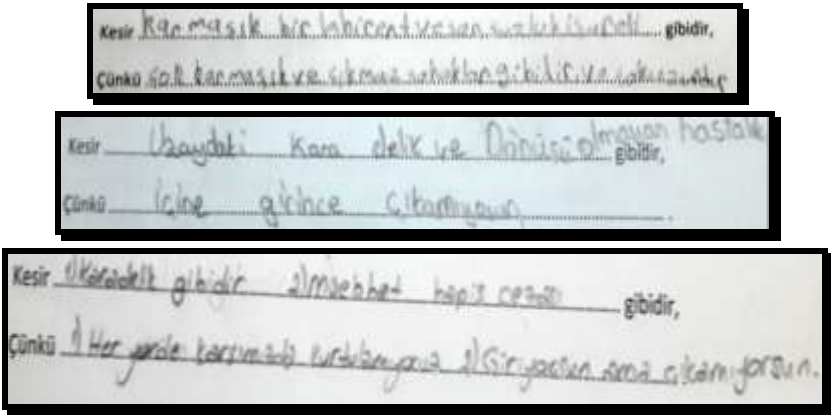 Kesir Karmaşık bir labirent ve sonsuzluk işareti gibidir,
Çünkü çok karmaşık ve çıkmaz sokaklar gibidir ve çok uzundur
Kesir Uzaydaki kara delik ve Dönüşü olmayan hastalık gibidir,
Çünkü içine girince çıkamıyorsun.
Kesir 1) Karadelik gibidir 2) müebbet hapis cezası gibidir,
Çünkü 1) Her yerde karşımızda kurtulamıyoruz 2) Giriyorsun ama çıkamıyorsun.